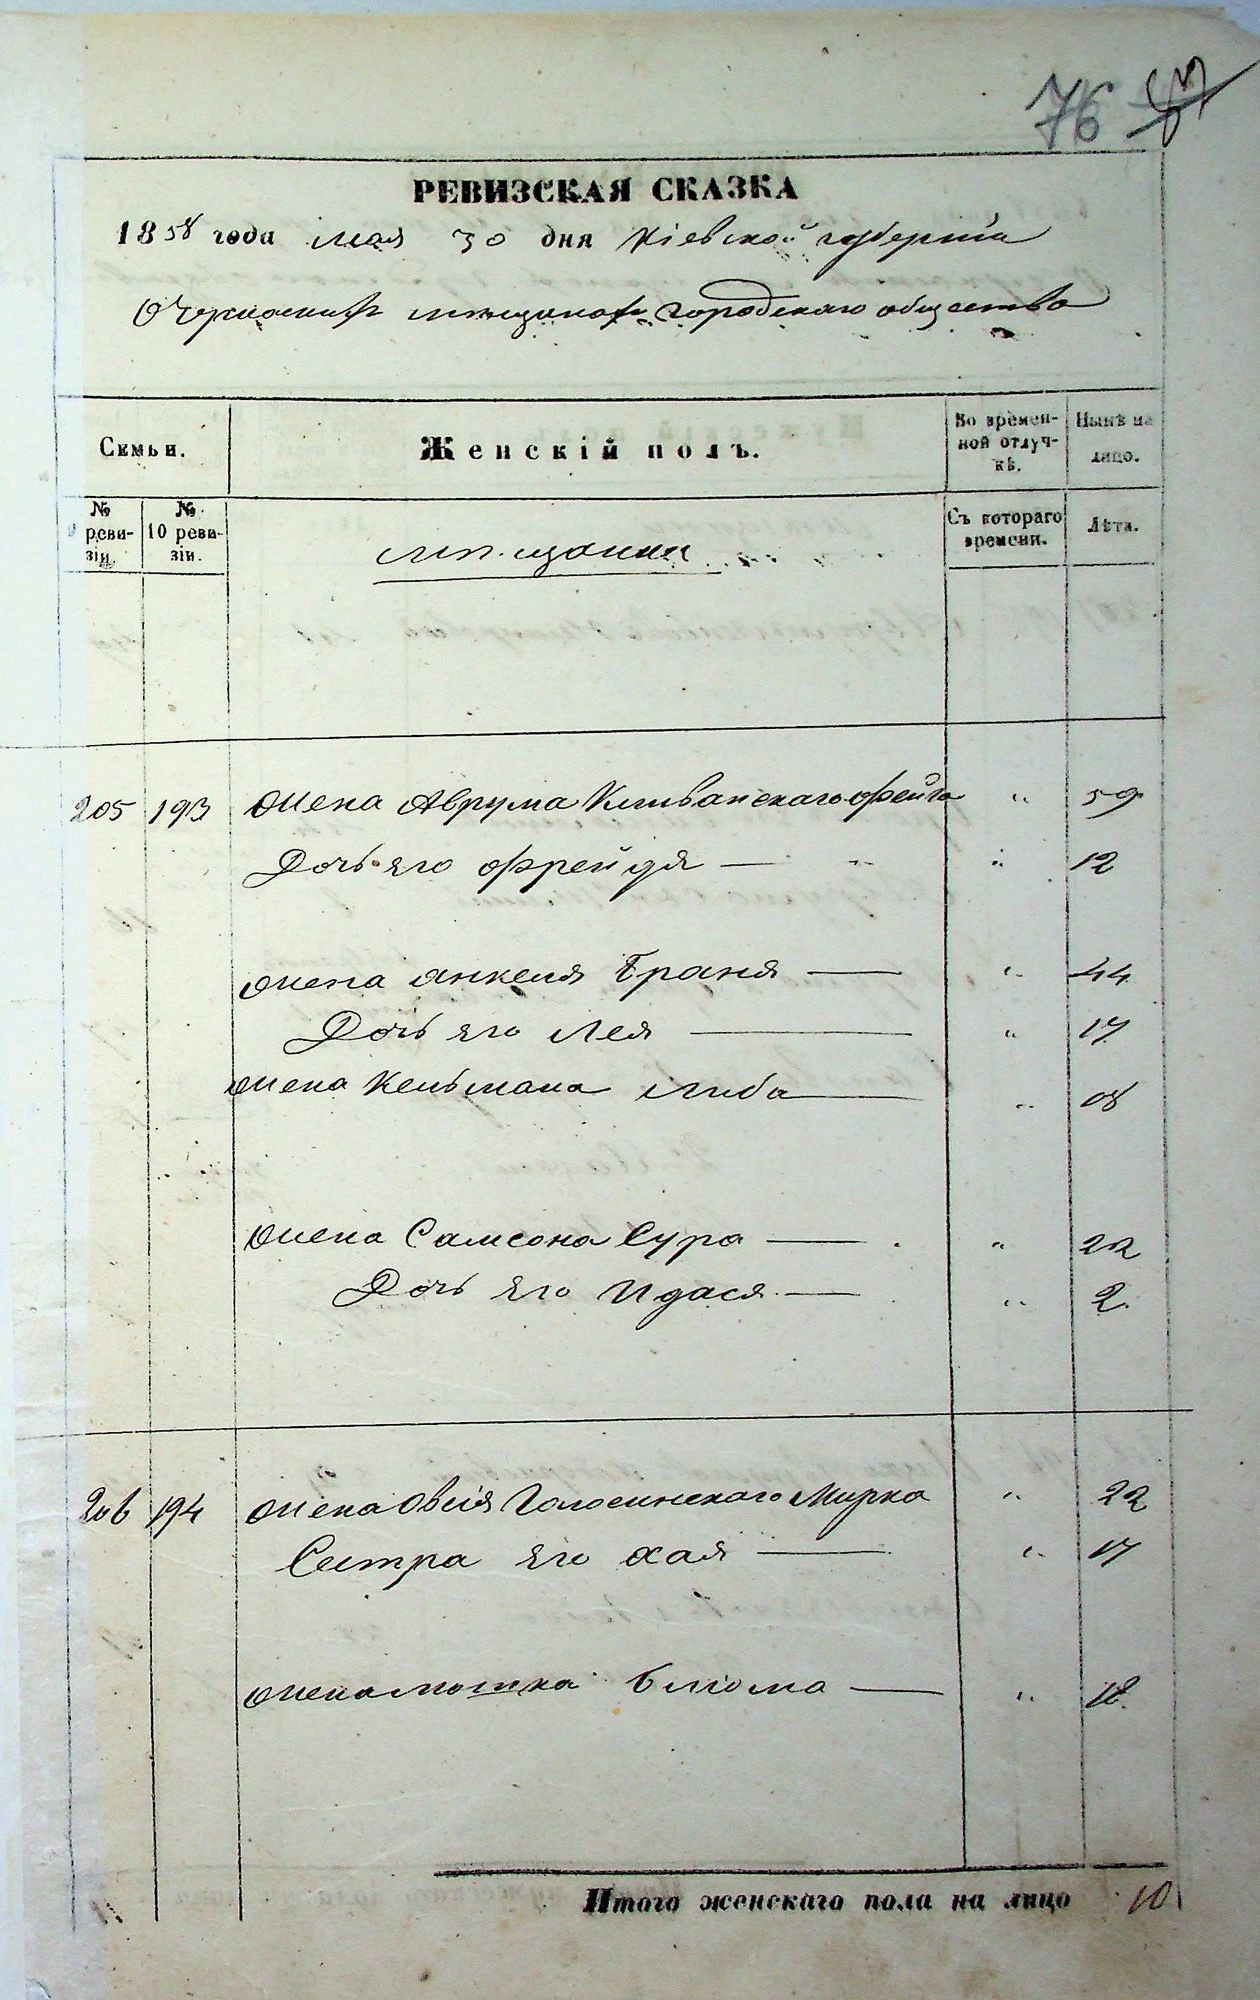 76
РЕВИЗСКАЯ СКАЗКА
1858 года мая 30 дня Кіевской губерніи
О Черкаскихъ мѣщанахъ городскаго общества
Семьи.
Женскій полъ.
Во времен-
ной отлуч-
кѣ.
Нынѣ на
лицо.
№
реви-
зіи
№
10 реви-
зіи.
мѣщанки
Съ котораго
времени.
Лѣта.
205 193 жена Аврума Фейга " 59
Дочь его Фрейдя — " " 12
жена Янкеля Браня — " 44
Дочь его Лея — " 17
жена Кельмана Либа — "
жена Самсона Сура — " 22
Дочь его Идася — " 2
206 194 жена Овсія Голосинскаго Мирка " 22
Сестра его Хая — " 17
жена Мошка Блюма — " 18
Итого женскаго пола на лицо 10